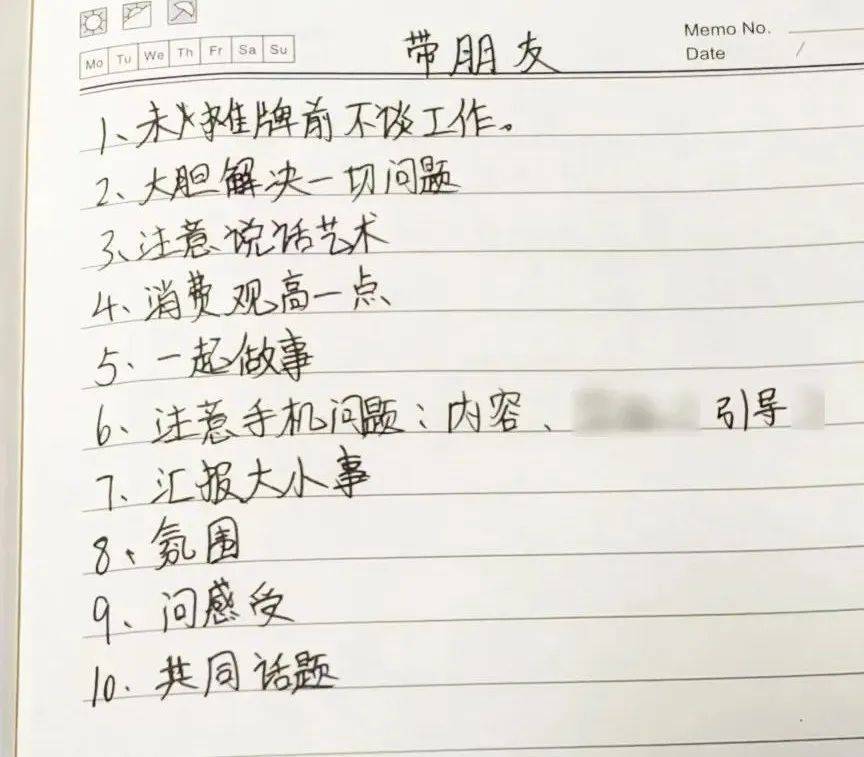 Memo No.
Mo Tu We Th Fr Sa Su
带朋友
Date /
1、未摊牌前不谈工作。
2、大胆解决一切问题
3、注意说话艺术
4、消费观高一点
5、一起做事
6、注意手机问题：内容、 引导
7、汇报大小事
8、氛围
9、问感受
10、共同话题